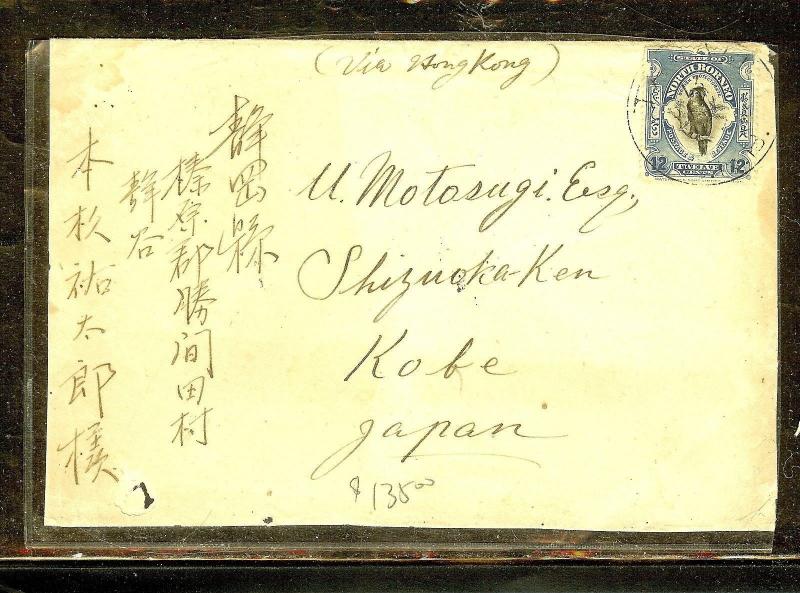 (Via HongKong)
NORTH BORNEO
12
TWELVE
12
CENTS
U. Motosugi. Esq.,
Shizuoka-Ken
Kobe
Japan
$135⁰⁰
静岡縣
榛原郡勝間田村
静谷
本杉祐太郎様